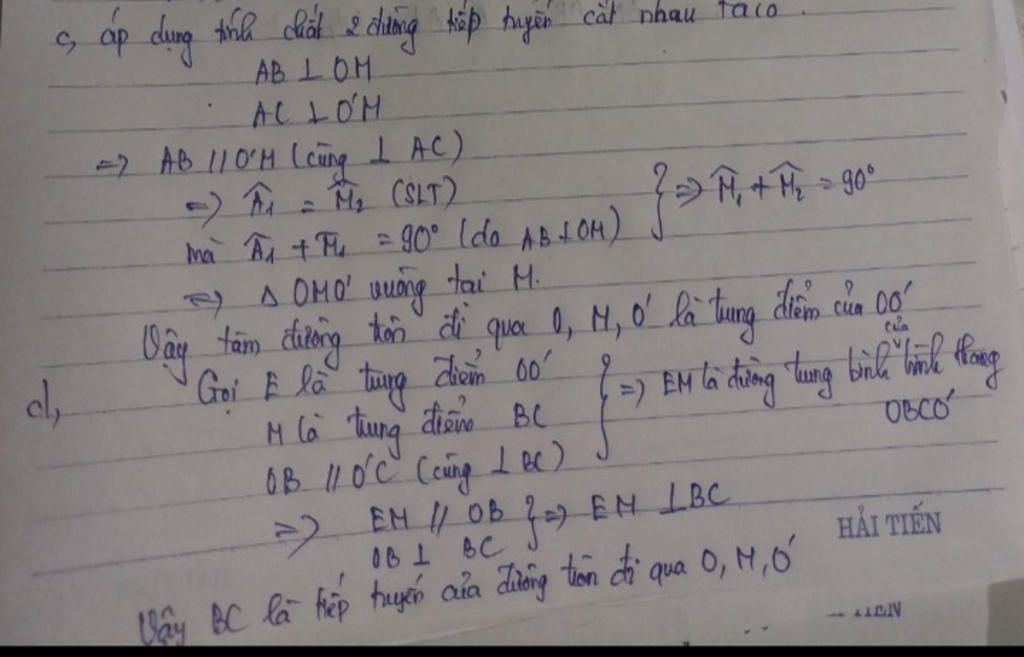 c, áp dụng tính chất 2 đường tiếp tuyến cắt nhau ta có.
AB ⊥ OM
AC ⊥ O'M
=> AB // O'M (cùng ⊥ AC)
=> Â1 = M̂2 (SLT)
mà Â1 + M̂1 = 90° (do AB ⊥ OM) } => M̂1 + M̂2 = 90°
=> Δ OMO' vuông tại M.
Vậy tâm đường tròn đi qua O, M, O' là trung điểm của OO'
d, Gọi E là trung điểm OO'
M là trung điểm BC
OB // O'C (cùng ⊥ BC) } => EM là đường trung bình của hình thang OBCO'
=> EM // OB
OB ⊥ BC } => EM ⊥ BC
HẢI TIẾN
Vậy BC là tiếp tuyến của đường tròn đi qua O, M, O'